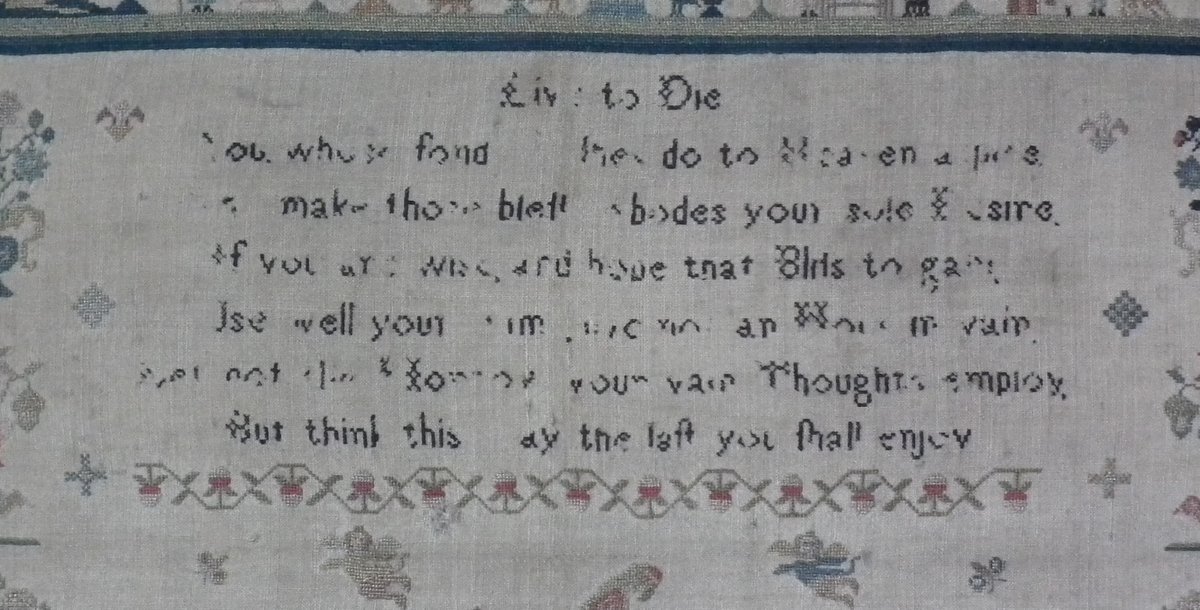 Live to Die
You whose fond do to Heaven aspire
make those bleſt abodes your sole Desire.
If you are wise, and hope that Bliſs to gain
Use well your time, not an Hour in vain.
Let not the Morrow your vain Thoughts employ,
But think this Day the laſt you ſhall enjoy